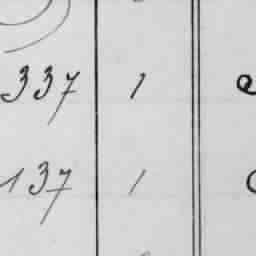 337 1
137 1